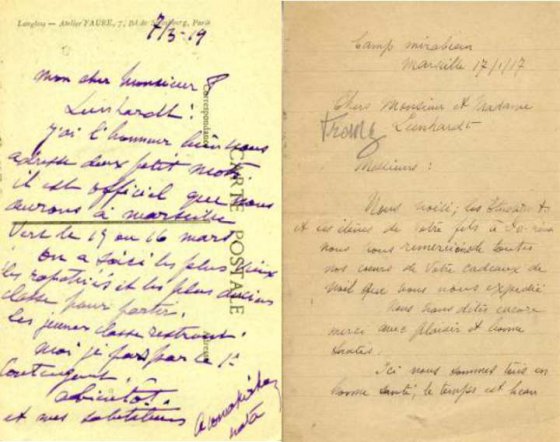 Langlois — Atelier FAURE, 7, Bd de Strasbourg, Paris
7/3-19
Mon cher Monsieur
Leenhardt !
j'ai l'honneur bien vous
adresse deux petit mots
il est officiel que nous
aurons à marseille
Vers le 15 ou 16 mars
on a saisi les plus vieux
les rapatriés et les plus anciens
classe pour partir.
les jeunes classe restront.
moi je pars par ce 1er
Contengent.
abientôt.
et mes salutations
Correspondance
CARTE POSTALE
Adresse
Camp mirabeau
Marseille 17/1/17
Chers Monsieur et Madame
Leenhardt
Messieurs :
Nous voilà ; les
et les élèves de votre fils à
nous vous remercions de toutes
nos cœurs de votre cadeaux de
noël que vous nous expédié
Nous vous dites encore
merci avec plaisir et bonne
santés.
Ici nous sommes tous en
bonne santé, le temps est beau